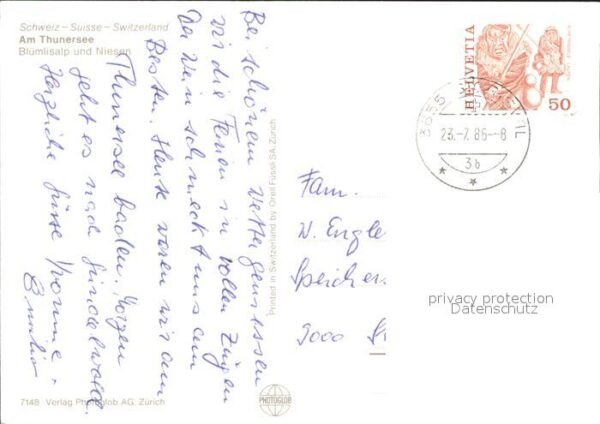 Schweiz – Suisse – Switzerland
Am Thunersee
Blümlisalp und Niesen
Bei schönem Wetter geniessen
wir die Ferien in vollen Zügen
Der Wein schmeckt uns am
Besten. Heute waren wir am
Thunersee baden. Morgen
geht es nach Grindelwald.
Herzliche Grüsse Yvonne +
7148 Verlag Photoglob AG. Zürich
Printed in Switzerland by Orell Füssli SA Zürich
PHOTOGLOB
HELVETIA
50
3655
23.-7.86-8
3b
Fam.
W. Engle
Speicher
9000 St
privacy protection
Datenschutz